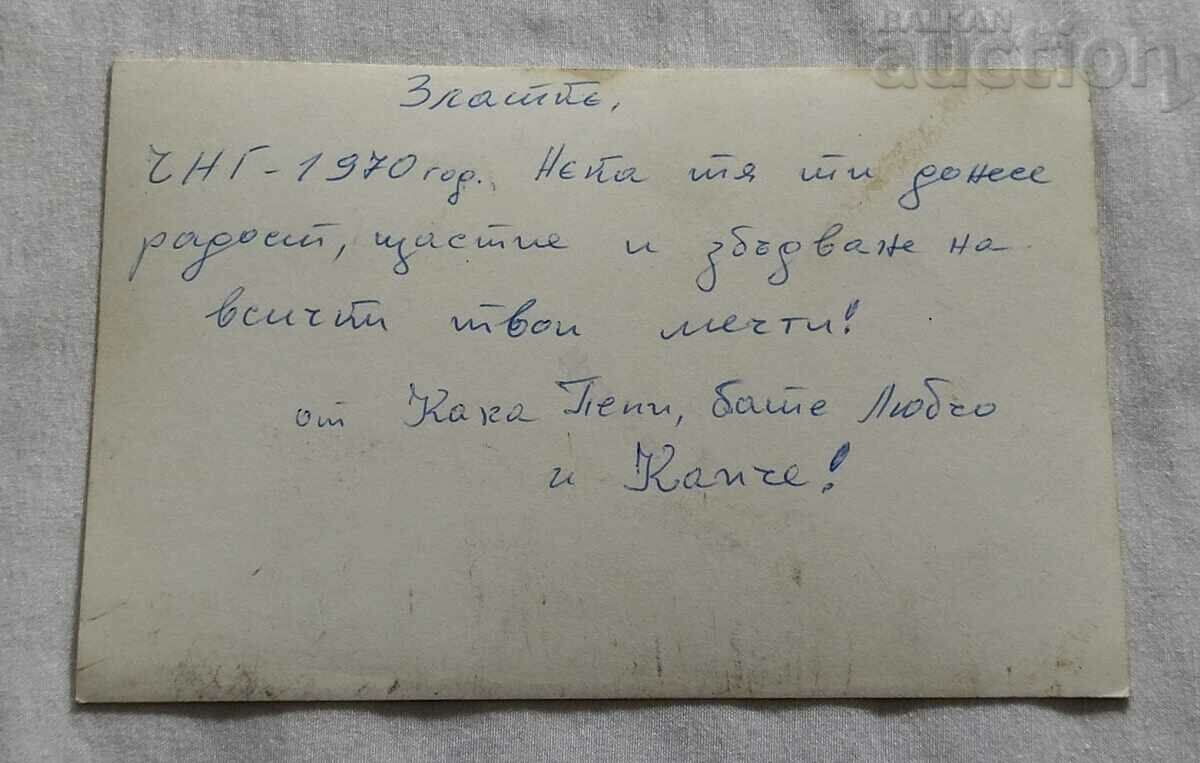 BALKAN
auction
Златке,
ЧНГ - 1970 год. Нека тя ти донесе
радост, щастие и збъдване на
всички твои мечти!
от Кака Пепи, бате Любчо
и Капче!